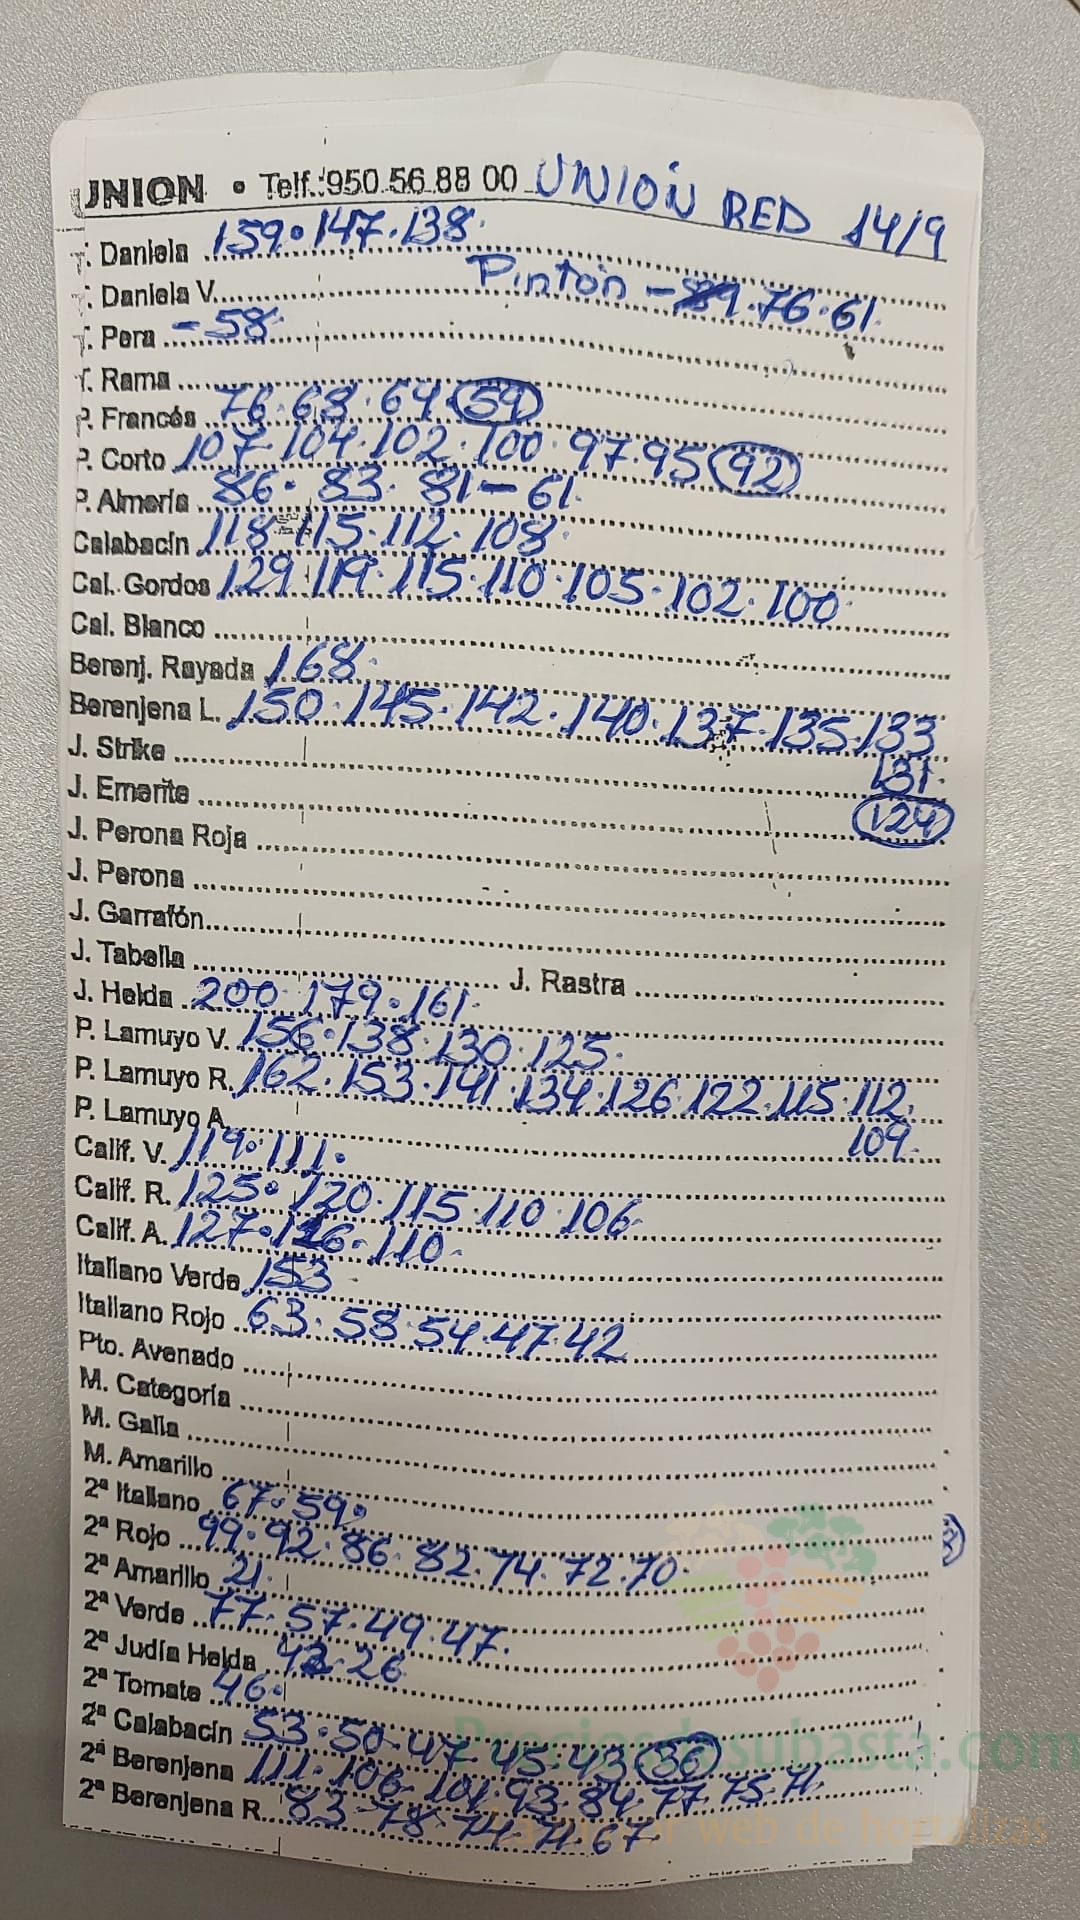 UNION • Telf.: 950 56 88 00 UNIÓN RED 14/9
T. Daniela 159 · 147 · 138 ·
T. Daniela V. Pintón - 89 · 76 · 61 ·
T. Pera - 58 ·
T. Rama
P. Francés 76 · 68 · 64 (59)
P. Corto 107 · 104 · 102 · 100 · 97 · 95 (92)
P. Almería 86 · 83 · 81 - 61 ·
Calabacín 118 · 115 · 112 · 108 ·
Cal. Gordos 129 · 119 · 115 · 110 · 105 · 102 · 100 ·
Cal. Blanco
Berenj. Rayada 168 ·
Berenjena L. 150 · 145 · 142 · 140 · 137 · 135 · 133
J. Strike 131 ·
J. Emerite (124)
J. Perona Roja
J. Perona
J. Garrafón
J. Tabella J. Rastra
J. Helda 200 · 179 · 161 ·
P. Lamuyo V. 156 · 138 · 130 · 125 ·
P. Lamuyo R. 162 · 153 · 141 · 134 · 126 · 122 · 115 · 112 ·
P. Lamuyo A. 109 ·
Calif. V. 119 · 111 ·
Calif. R. 125 · 120 · 115 · 110 · 106 ·
Calif. A. 127 · 116 · 110 ·
Italiano Verde 153
Italiano Rojo 63 · 58 · 54 · 47 · 42
Pto. Avenado
M. Categoría
M. Galia
M. Amarillo
2ª Italiano 67 · 59 ·
2ª Rojo 99 · 92 · 86 · 82 · 74 · 72 · 70 ·
2ª Amarillo 21 ·
2ª Verde 77 · 57 · 49 · 47 ·
2ª Judía Helda 26
2ª Tomate 46 ·
2ª Calabacín 53 · 50 · 47 · 45 · 43 (36)
2ª Berenjena 111 · 106 · 101 · 93 · 84 · 77 · 75 · 71
2ª Berenjena R. 83 · 78 · 74 · 71 · 67
Preciosdesubasta.com
web de hortalizas